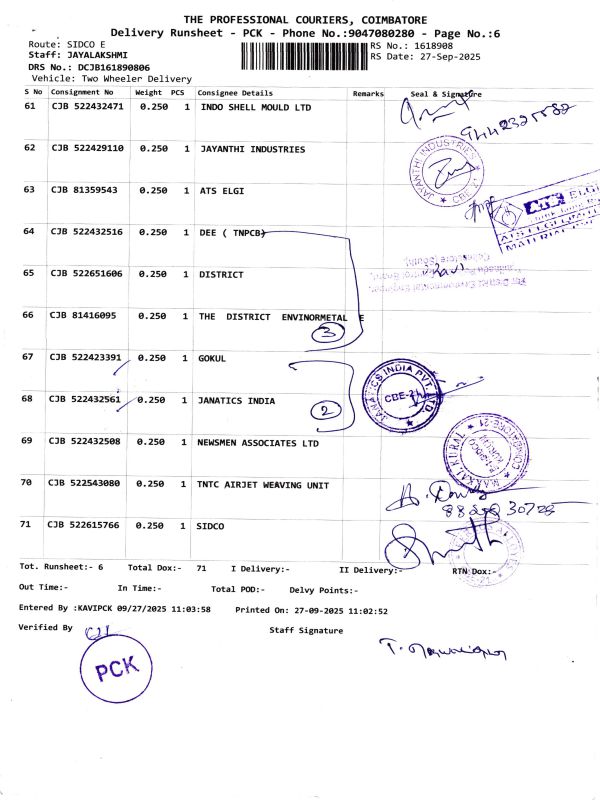 THE PROFESSIONAL COURIERS, COIMBATORE
Delivery Runsheet - PCK - Phone No.:9047080280 - Page No.:6
Route: SIDCO E
RS No.: 1618908
Staff: JAYALAKSHMI
RS Date: 27-Sep-2025
DRS No.: DCJB161890806
Vehicle: Two Wheeler Delivery
S No Consignment No Weight PCS Consignee Details Remarks Seal & Signature
61 CJB 522432471 0.250 1 INDO SHELL MOULD LTD
62 CJB 522429110 0.250 1 JAYANTHI INDUSTRIES
JAYANTHI INDUSTRIES
63 CJB 81359543 0.250 1 ATS ELGI
64 CJB 522432516 0.250 1 DEE ( TNPCB)
65 CJB 522651606 0.250 1 DISTRICT
66 CJB 81416095 0.250 1 THE DISTRICT ENVINORMETAL E
3
67 CJB 522423391 0.250 1 GOKUL
68 CJB 522432561 0.250 1 JANATICS INDIA
2
JANATICS INDIA PVT. LTD.
CBE-21
69 CJB 522432508 0.250 1 NEWSMEN ASSOCIATES LTD
MAKKAL KURAL
COIMBATORE-21
70 CJB 522543080 0.250 1 TNTC AIRJET WEAVING UNIT
71 CJB 522615766 0.250 1 SIDCO
Tot. Runsheet:- 6 Total Dox:- 71 I Delivery:- II Delivery:- RTN Dox:-
Out Time:- In Time:- Total POD:- Delvy Points:-
Entered By :KAVIPCK 09/27/2025 11:03:58 Printed On: 27-09-2025 11:02:52
Verified By Staff Signature
PCK